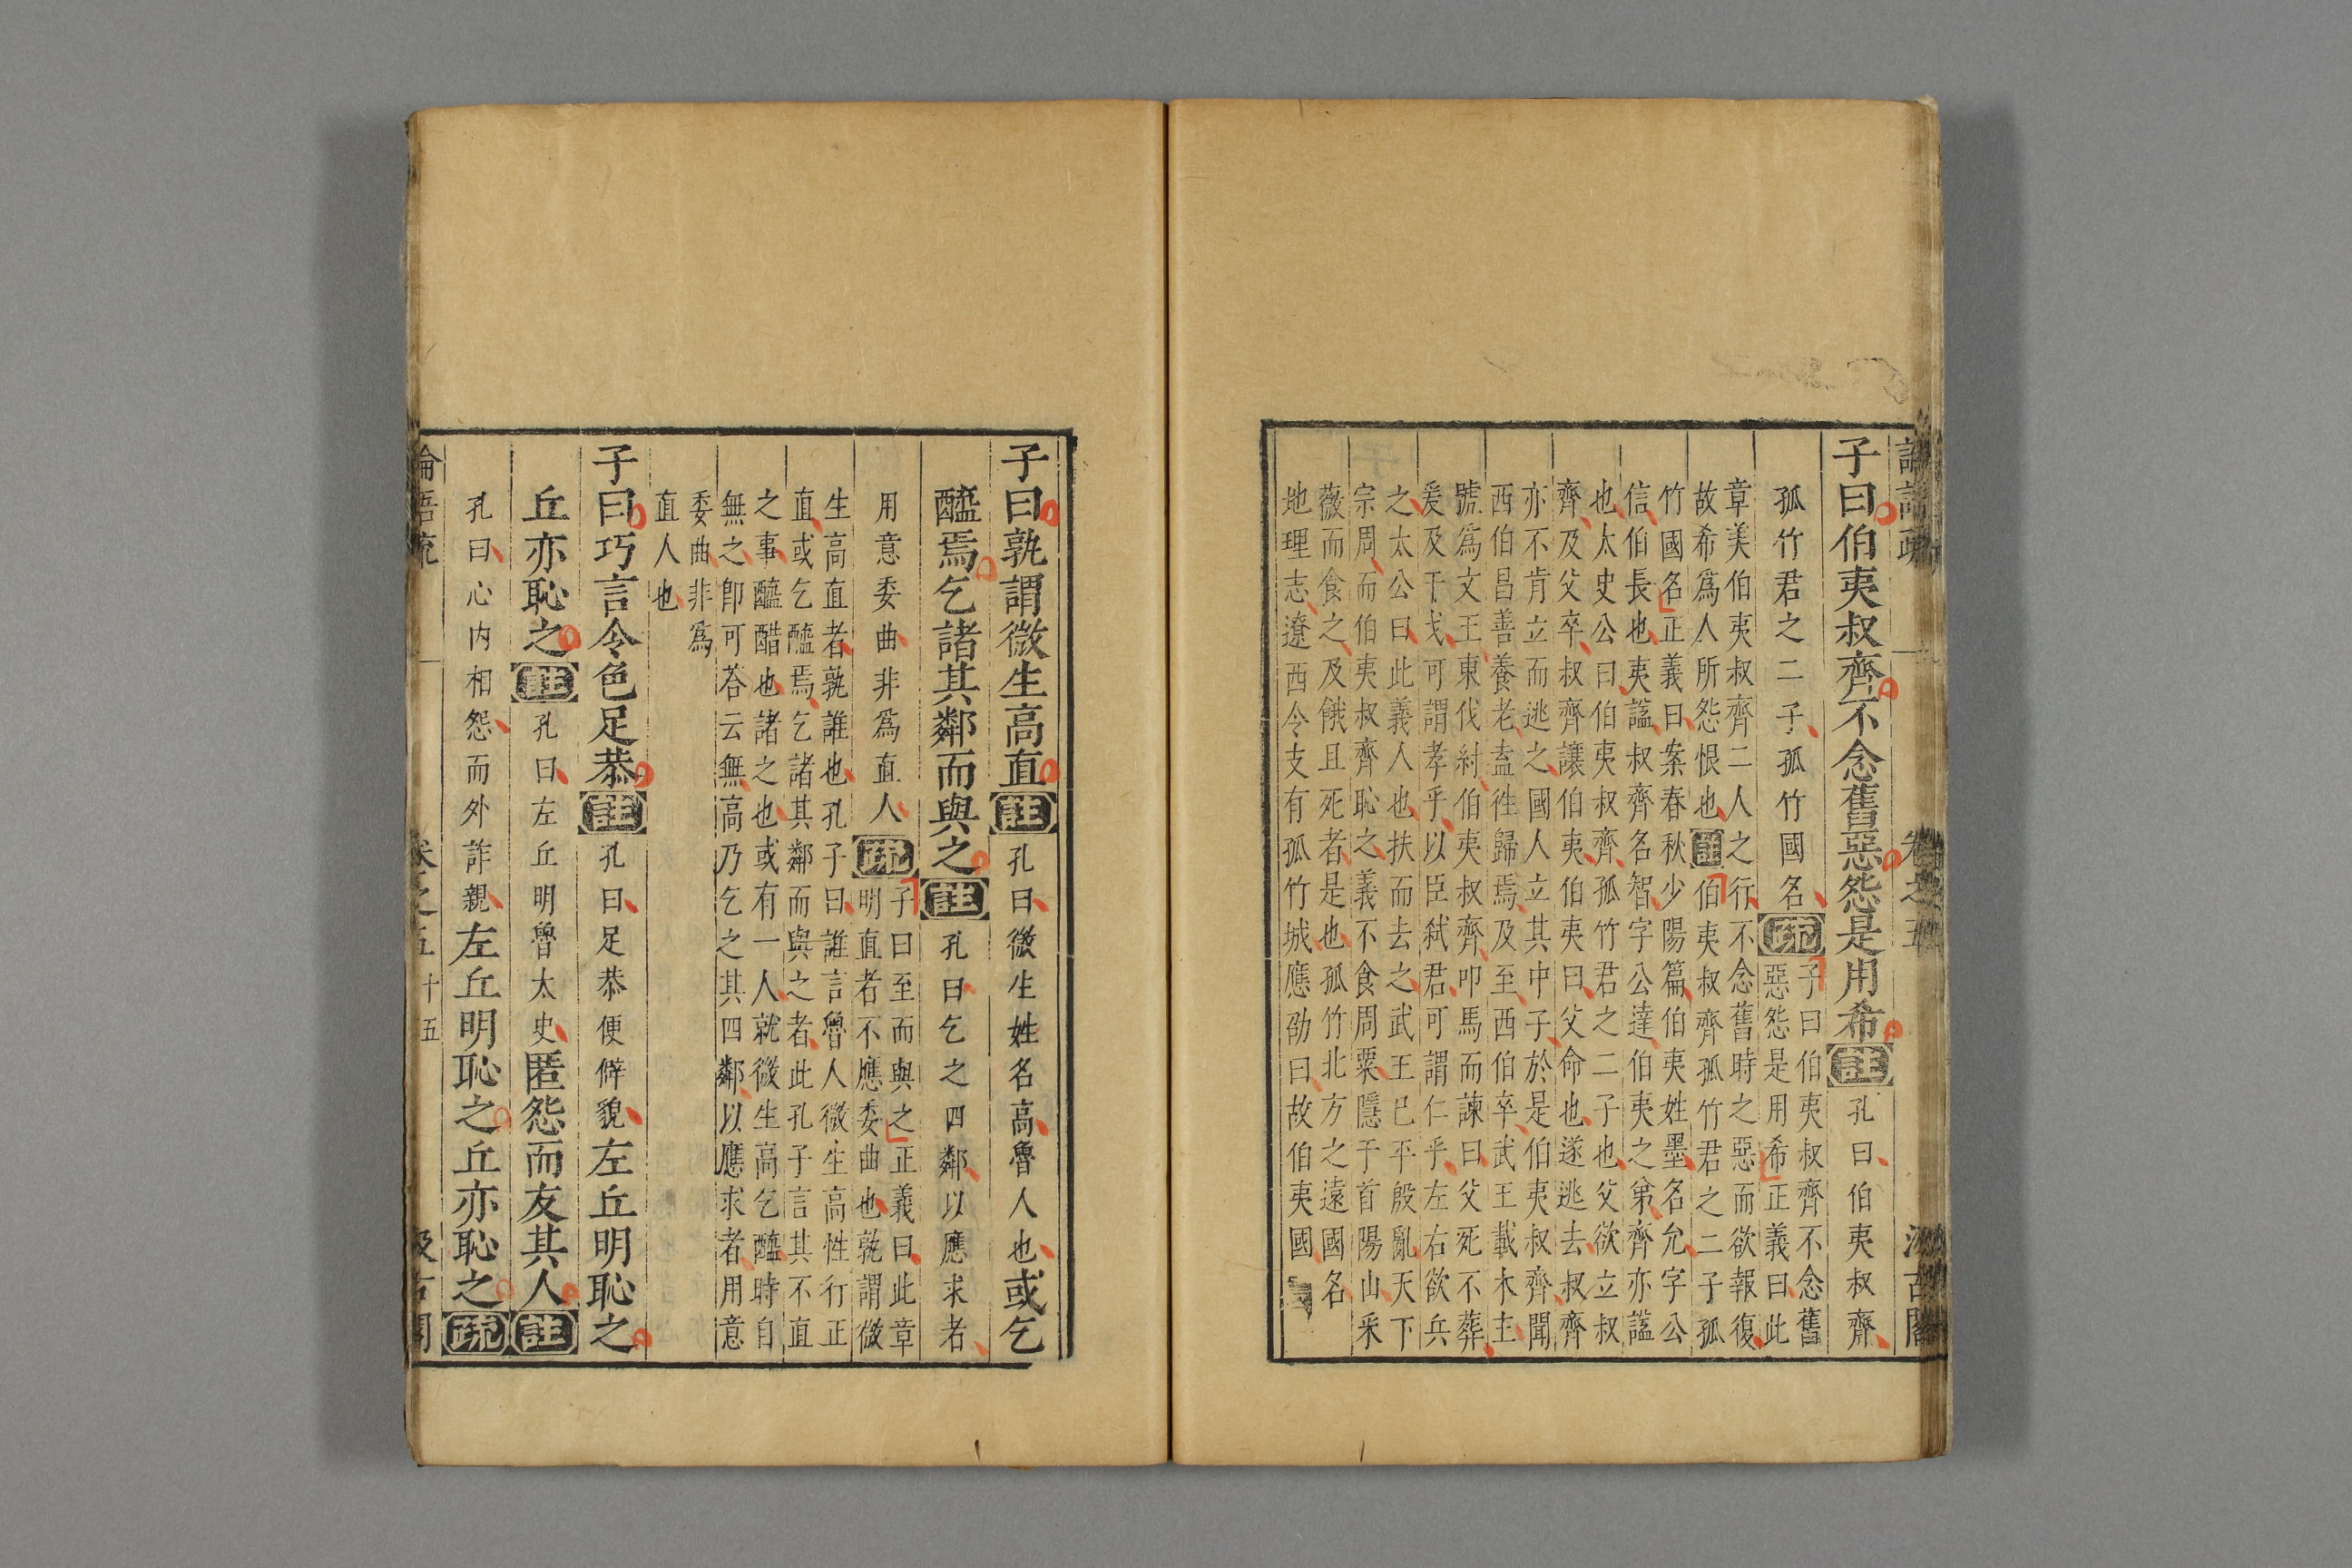 子曰伯夷叔齊不念舊惡怨是用希註孔曰伯夷叔齊
孤竹君之二子孤竹國名疏子曰伯夷叔齊不念舊
惡怨是用希正義曰此
章美伯夷叔齊二人之行不念舊時之惡而欲報復
故希爲人所怨恨也註伯夷叔齊孤竹君之二子孤
竹國名正義曰案春秋少陽篇伯夷姓墨名允字公
信伯長也夷謚叔齊名智字公達伯夷之弟齊亦謚
也太史公曰伯夷叔齊孤竹君之二子也父欲立叔
齊及父卒叔齊讓伯夷伯夷曰父命也遂逃去叔齊
亦不肯立而逃之國人立其中子於是伯夷叔齊聞
西伯昌善養老盍徃歸焉及至西伯卒武王載木主
號爲文王東伐紂伯夷叔齊叩馬而諫曰父死不葬
爰及干戈可謂孝乎以臣弑君可謂仁乎左右欲兵
之太公曰此義人也扶而去之武王已平殷亂天下
宗周而伯夷叔齊恥之義不食周粟隱于首陽山采
薇而食之及餓且死者是也孤竹北方之遠國名
地理志遼西令支有孤竹城應劭曰故伯夷國
子曰孰謂微生高直註孔曰微生姓名高魯人也或乞
醯焉乞諸其鄰而與之註孔曰乞之四鄰以應求者
用意委曲非爲直人疏子曰至而與之正義曰此章
明直者不應委曲也孰謂微
生高直者孰誰也孔子曰誰言魯人微生高性行正
直或乞醯焉乞諸其鄰而與之者此孔子言其不直
之事醯醋也諸之也或有一人就微生高乞醯時自
無之卽可荅云無高乃乞之其四鄰以應求者用意
委曲非爲
直人也
子曰巧言令色足恭註孔曰足恭便僻貌左丘明恥之
丘亦恥之註孔曰左丘明魯太史匿怨而友其人註
孔曰心内相怨而外詐親左丘明恥之丘亦恥之疏